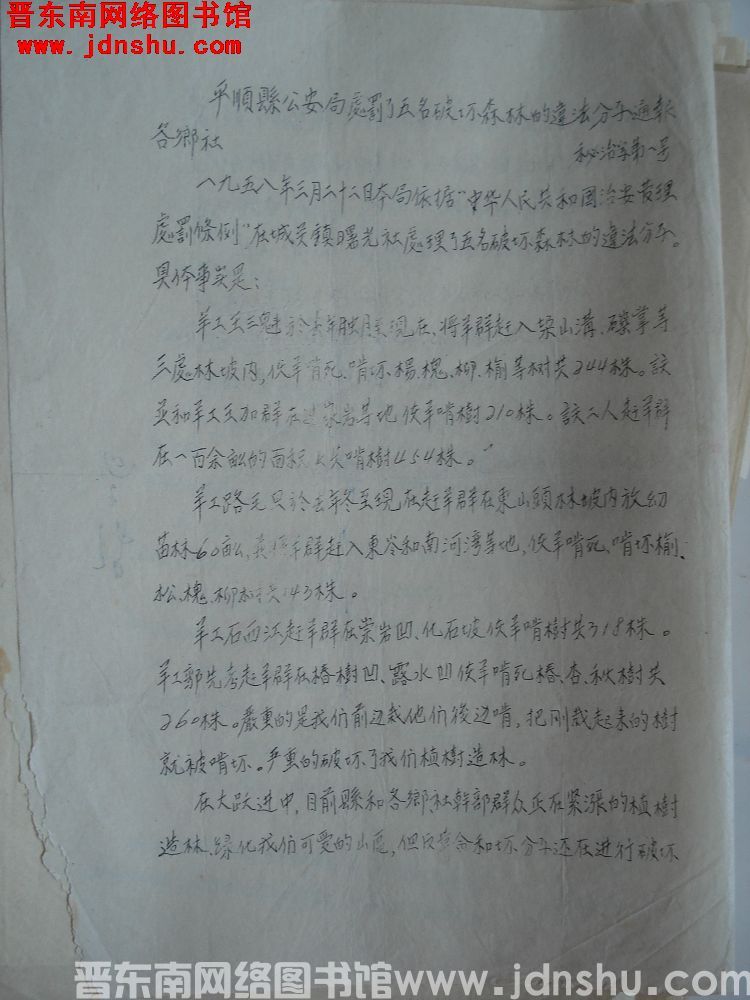 晋东南网络图书馆
www.jdnshu.com
平順縣公安局處罰了五名破坏森林的違法分子通報
各鄉社
秘治字第一号
一九五八年三月二十二日本局依据“中华人民共和國治安管理
處罰條例”在城关鎮曙光社處理了五名破坏森林的違法分子。
具体事实是：
羊工王三魁於去年 現在、将羊群赶入 山溝、 掌等
三處林坡内,使羊啃死、啃坏楊、槐、柳、榆等树共244株。該
並和羊工王加群在 家岩等地使羊啃樹210株。該二人赶羊群
在一百余畝的面积 共啃樹454株。
羊工路毛只於去年冬至現在赶羊群在東山頭林坡内放幼
苗林60畝, 将羊群赶入東峇和南河湾等地,使羊啃死、啃坏榆、
松、槐、柳 共143株。
羊工石西江赶羊群在崇岩凹、化石坡使羊啃樹共318株。
羊工郭先考赶羊群在椿樹凹、露水凹使羊啃死椿、杏、秋樹共
260株。嚴重的是我们前边栽他们後边啃,把刚栽起来的樹
就被啃坏。严重的破坏了我们植樹造林。
在大跃进中,目前縣和各鄉社幹部群众正在紧漲的植樹
造林、绿化我们可爱的山區,但反革命和坏分子还在进行破坏
晋东南网络图书馆www.jdnshu.com